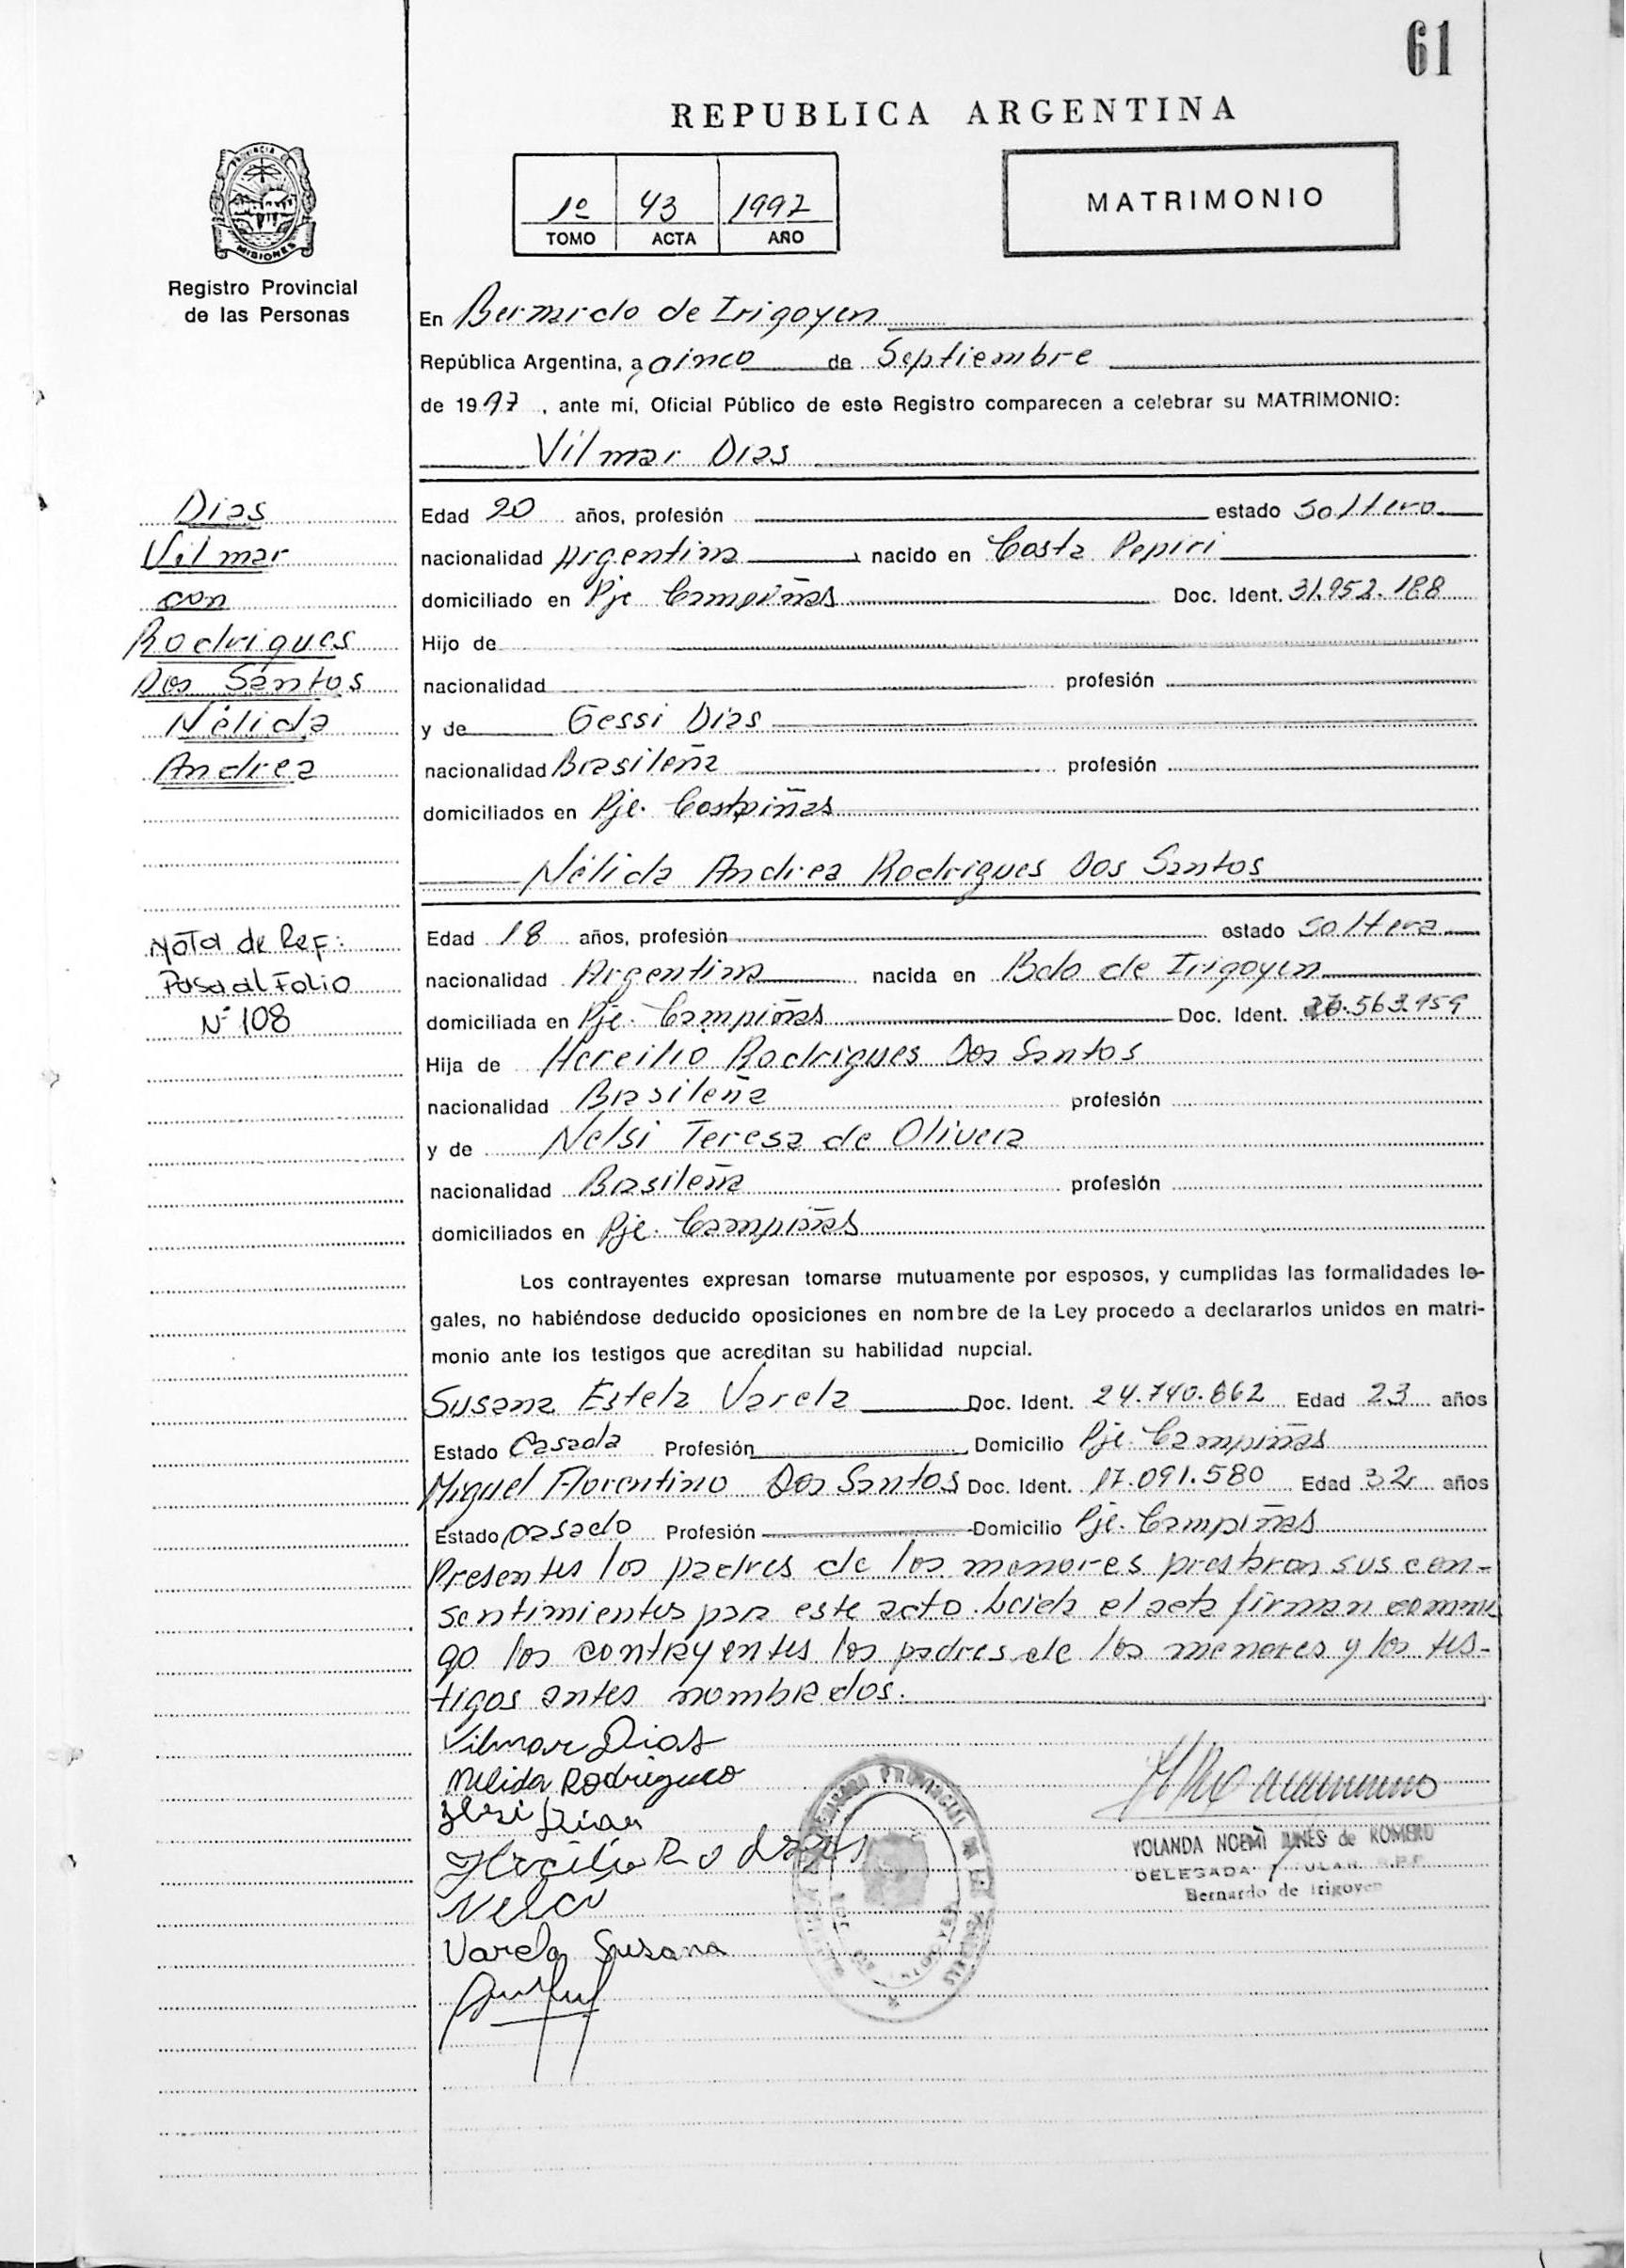 61
REPUBLICA ARGENTINA
PROVINCIA DE
MISIONES
Registro Provincial
de las Personas
1º 43 1997
TOMO ACTA AÑO
MATRIMONIO
En Bernardo de Irigoyen
República Argentina, a cinco de Septiembre
de 1997, ante mí, Oficial Público de este Registro comparecen a celebrar su MATRIMONIO:
Vilmar Dias
Dias
Vilmar
con
Rodrigues
Dos Santos
Nélida
Andrea
Edad 20 años, profesión estado Soltero
nacionalidad Argentina nacido en Costa Pepiri
domiciliado en Pje Campiñas Doc. Ident. 31.952.188
Hijo de
nacionalidad profesión
y de Gessi Dias
nacionalidad Brasileña profesión
domiciliados en Pje.
Nélida Andrea Rodrigues Dos Santos
Nota de Ref:
Pasa al Folio
Nº 108
Edad 18 años, profesión estado Soltera
nacionalidad Argentina nacida en Bdo de Irigoyen
domiciliada en Pje. Campiñas Doc. Ident.
Hija de Hercilio Rodrigues Dos Santos
nacionalidad Brasileña profesión
y de Nelsi Teresa de Olivera
nacionalidad Brasileña profesión
domiciliados en Pje. Campiñas
Los contrayentes expresan tomarse mutuamente por esposos, y cumplidas las formalidades le-
gales, no habiéndose deducido oposiciones en nombre de la Ley procedo a declararlos unidos en matri-
monio ante los testigos que acreditan su habilidad nupcial.
Susana Estela Varela Doc. Ident. 24.740.862 Edad 23 años
Estado Casada Profesión Domicilio Pje. Campiñas
Miguel Florentino Dos Santos Doc. Ident. 17.091.580 Edad 32 años
Estado casado Profesión Domicilio Pje. Campiñas
Presentes los padres de los menores prestaron sus con-
sentimientos para este acto. Leida el acta firman conmi
go los contrayentes los padres de los menores y los tes-
tigos antes nombrados.
Vilmar Dias
Nelida Rodrigues
Dias
Varela Susana
YOLANDA NOEMI JUNES de ROMERO
DELEGADA TITULAR R.P.P.
Bernardo de Irigoyen